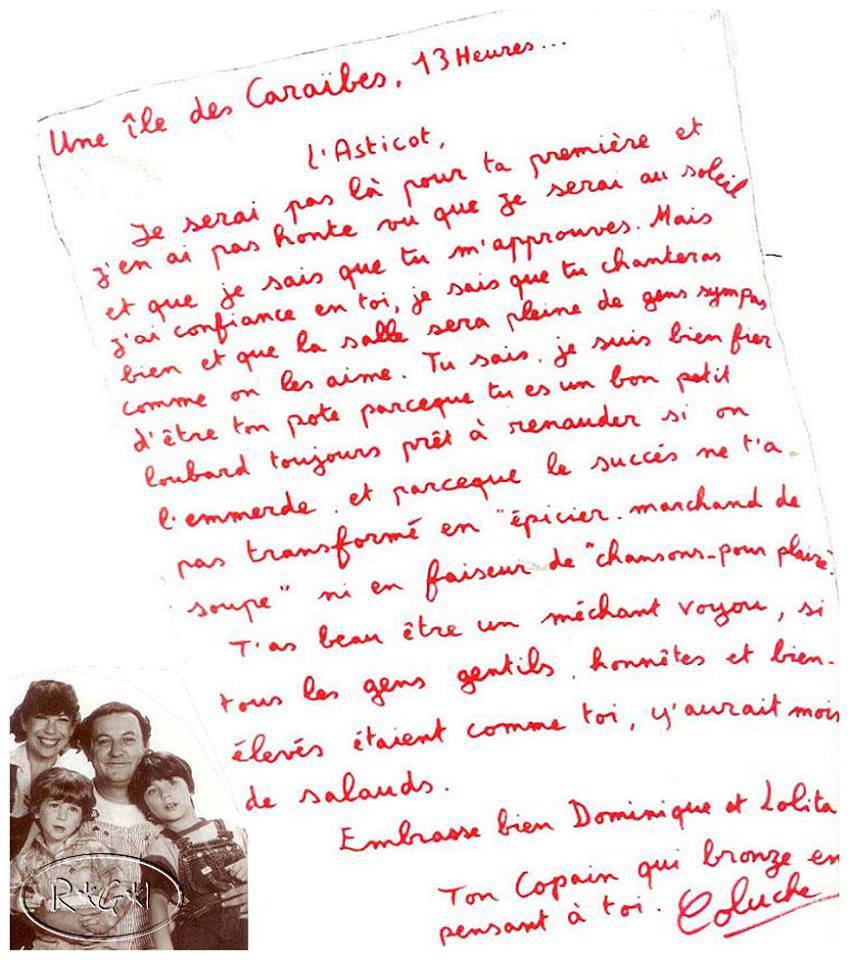 Une île des Caraïbes, 13 Heures...
L'Asticot,
Je serai pas là pour ta première et
j'en ai pas honte vu que je serai au soleil
et que je sais que tu m'approuves. Mais
j'ai confiance en toi, je sais que tu chanteras
bien et que la salle sera pleine de gens sympas
comme on les aime. Tu sais, je suis bien fier
d'être ton pote parceque tu es un bon petit
loubard toujours prêt à renauder si on
l'emmerde, et parceque le succés ne t'a
pas transformé en "épicier-marchand de
soupe" ni en faiseur de "chansons-pour plaire".
T'as beau être un méchant voyou, si
tous les gens gentils, honnêtes et bien-
élevés étaient comme toi, y'aurait mois
de salauds.
Embrasse bien Dominique et Lolita
Ton Copain qui bronze en
pensant à toi. Coluche
R*G*H